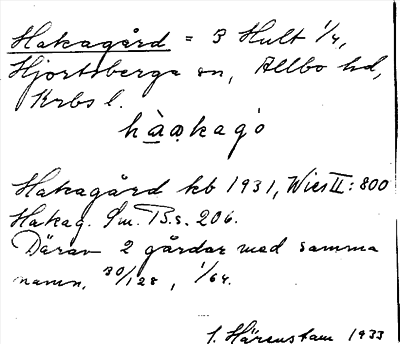 Hakagård = 3 Hult 1/4,
Hjortsberga sn, Allbo hd,
Krbs l.
hàakagó
Hakagård kb 1931, Wies II: 800
Hakag. Sm. Bs. 206.
Därav 2 gårdar med samma
namn, 30/128, 1/64.
Härenstam 1933